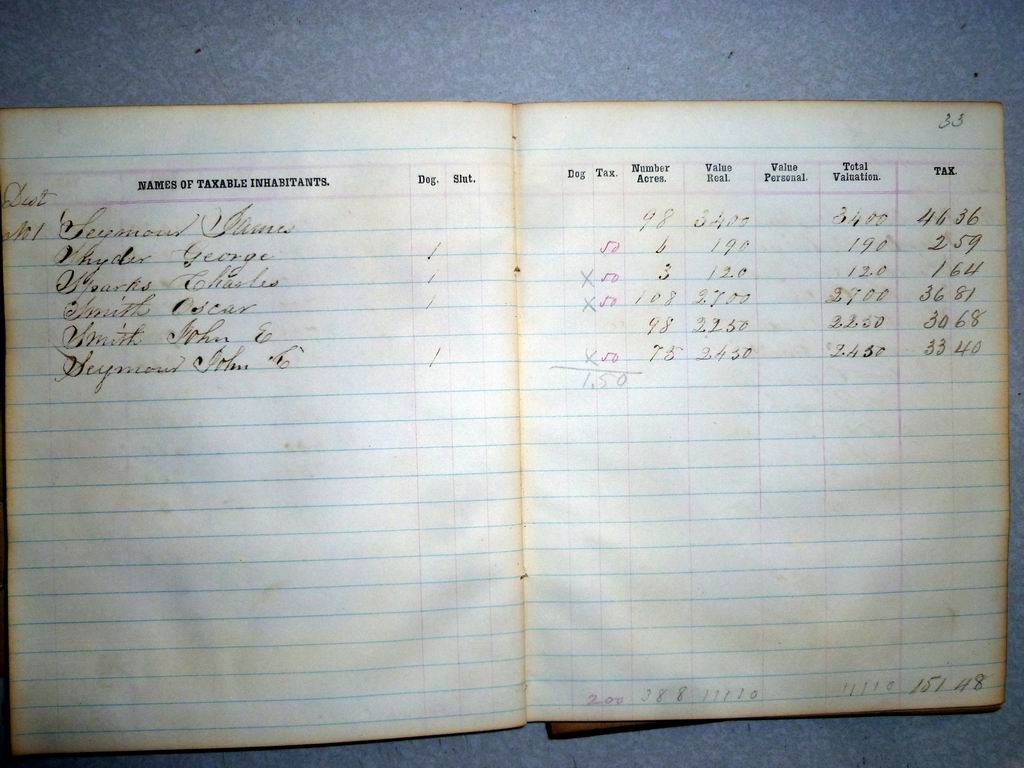 33
NAMES OF TAXABLE INHABITANTS. Dog. Slut. Dog Tax. Number Acres. Value Real. Value Personal. Total Valuation. TAX.
Dist
No 1 Seymour James 98 3400 3400 46 36
Snyder George 1 50 6 190 190 2 59
Sparks Charles 1 X 50 3 120 120 1 64
Smith Oscar 1 X 50 108 2700 2700 36 81
Smith John E 98 2250 2250 30 68
Seymour John C 1 X 50 75 2450 2450 33 40
1.50
2.00 388 11110 11110 151 48